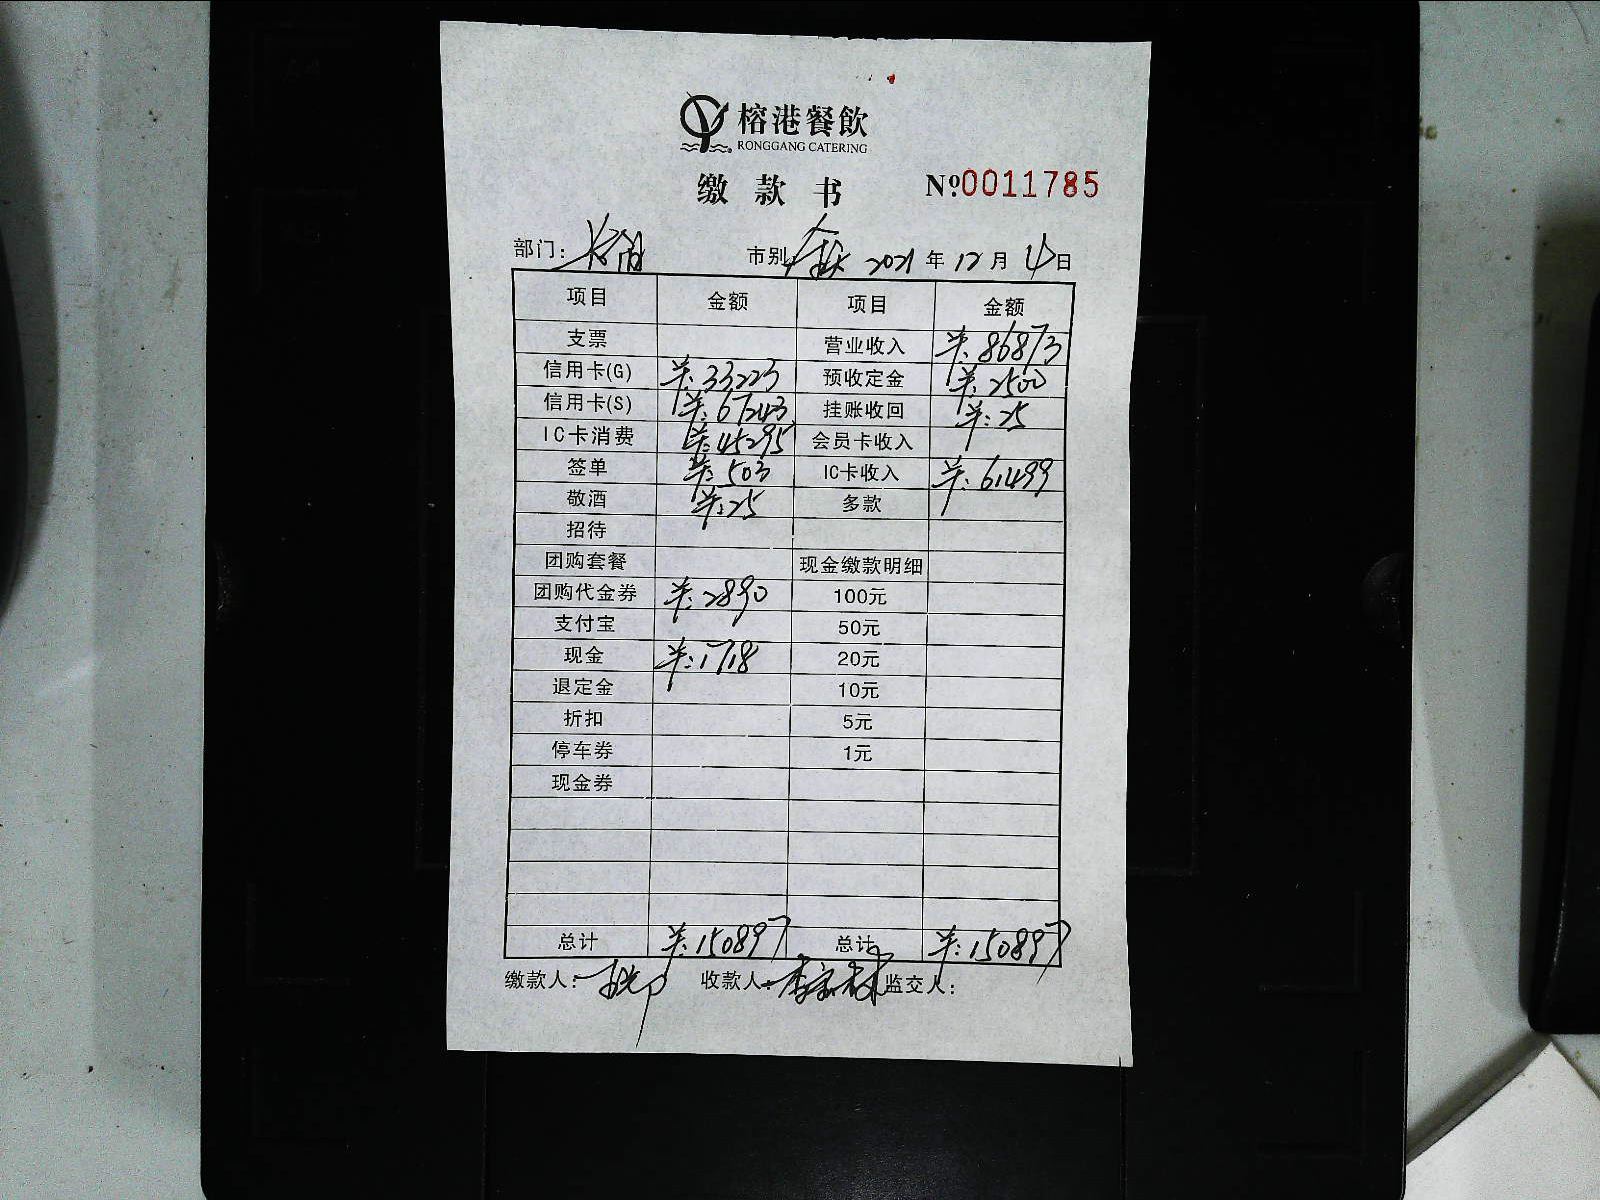 榕港餐飲
RONGGANG CATERING
缴款书 №0011785
部门: 市别:全天 2021年12月4日
项目 金额 项目 金额
支票 营业收入 ¥:86873
信用卡(G) ¥:33223 预收定金 ¥:2500
信用卡(S) ¥:67243 挂账收回 ¥:25
IC卡消费 ¥:45295 会员卡收入
签单 ¥:503 IC卡收入 ¥:61499
敬酒 ¥:25 多款
招待
团购套餐 现金缴款明细
团购代金券 ¥:2890 100元
支付宝 50元
现金 ¥:1718 20元
退定金 10元
折扣 5元
停车券 1元
现金券
总计 ¥:150897 总计 ¥:150897
缴款人: 收款人: 监交人: